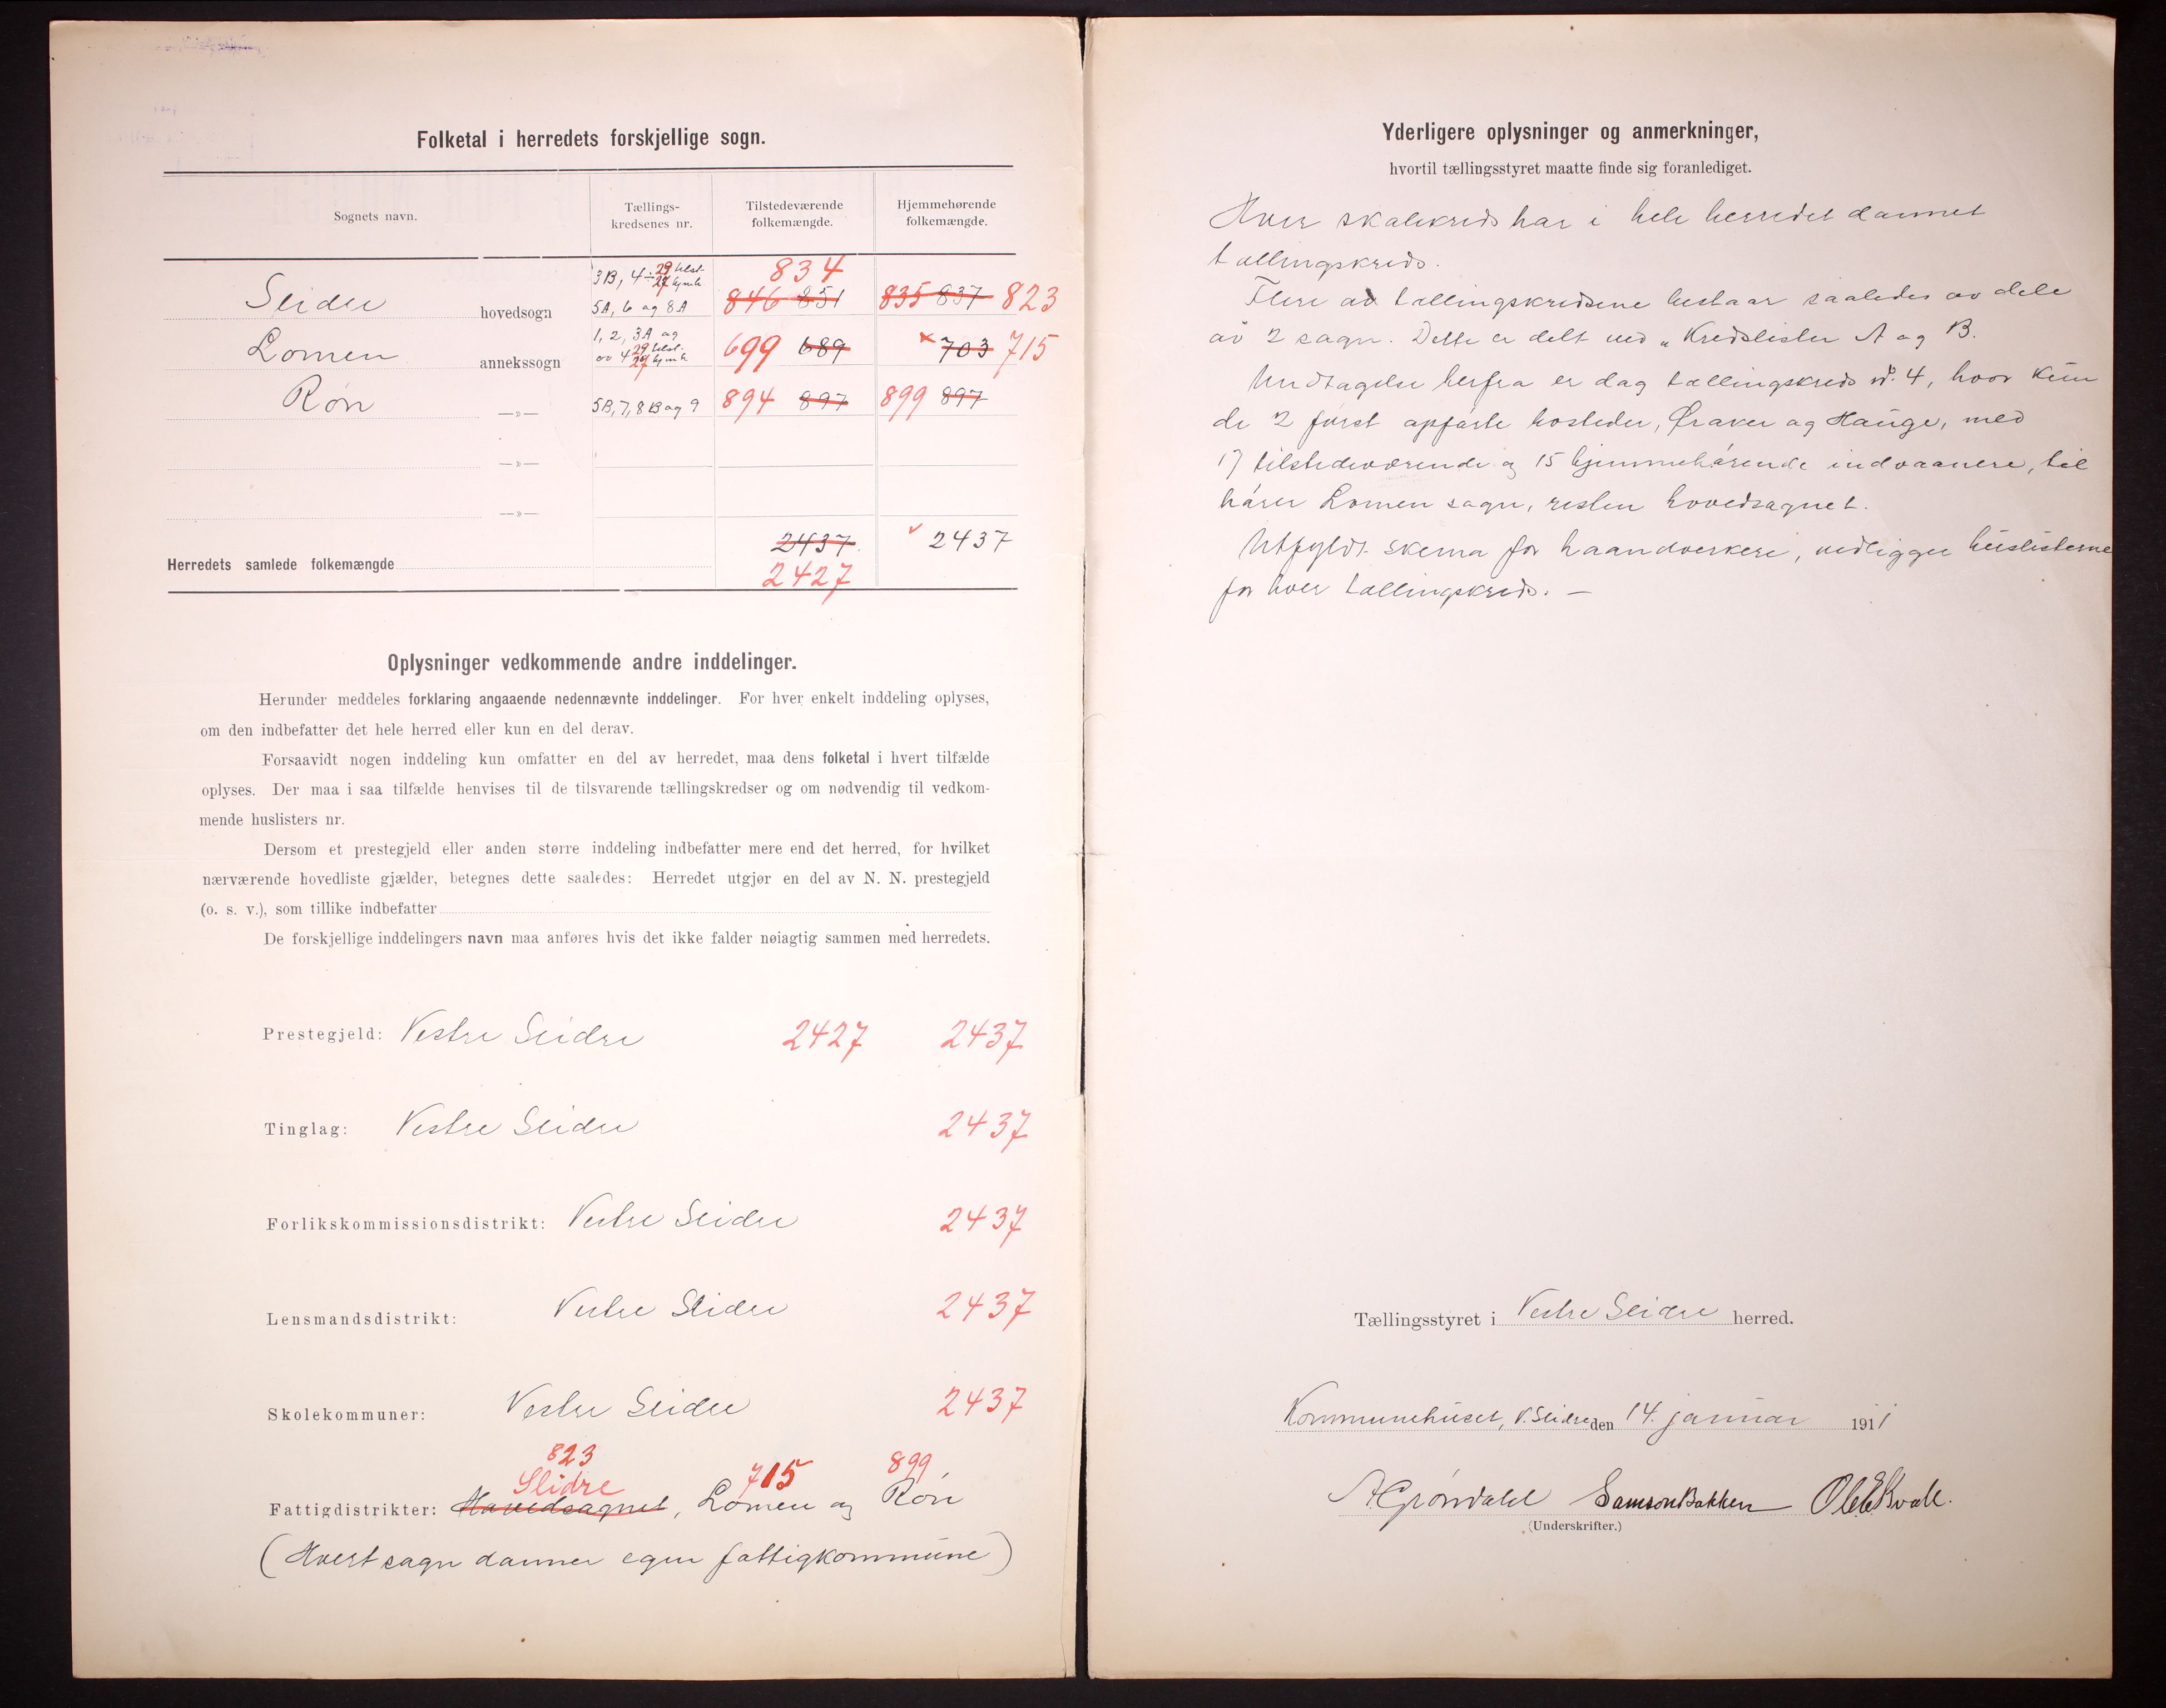 Folketal i herredets forskjellige sogn.
Sognets navn.
Tællings-
kredsenes nr.
Tilstedeværende
folkemængde.
Hjemmehørende
folkemængde.
3B, 4 ÷ 29 tilst.
27 hjmh.
834
Slidre hovedsogn 5A, 6 og 8A 846 851 835 837 823
1, 2, 3A og
Lomen annekssogn av 4 29 tilst. 27 hjmh 699 689 703 715
Røn —»— 5B, 7, 8B og 9 894 897 899 897
—»—
—»—
2437 2437
Herredets samlede folkemængde
2427
Oplysninger vedkommende andre inddelinger.
Herunder meddeles forklaring angaaende nedennævnte inddelinger. For hver enkelt inddeling oplyses,
om den indbefatter det hele herred eller kun en del derav.
Forsaavidt nogen inddeling kun omfatter en del av herredet, maa dens folketal i hvert tilfælde
oplyses. Der maa i saa tilfælde henvises til de tilsvarende tællingskredser og om nødvendig til vedkom-
mende huslisters nr.
Dersom et prestegjeld eller anden større inddeling indbefatter mere end det herred, for hvilket
nærværende hovedliste gjælder, betegnes dette saaledes: Herredet utgjør en del av N. N. prestegjeld
(o. s. v.), som tillike indbefatter
De forskjellige inddelingers navn maa anføres hvis det ikke falder nøiagtig sammen med herredets.
Prestegjeld: Vestre Slidre 2427 2437
Tinglag: Vestre Slidre 2437
Forlikskommissionsdistrikt: Vestre Slidre 2437
Lensmandsdistrikt: Vestre Slidre 2437
Skolekommuner: Vestre Slidre 2437
823 715 899
Slidre
Fattigdistrikter: Hovedsognet, Lomen og Røn
(Hvert sogn danner egen fattigkommune)
Yderligere oplysninger og anmerkninger,
hvortil tællingsstyret maatte finde sig foranlediget.
Hver skolekreds har i hele herredet dannet
tællingskreds.
Flere av tællingskredsene bestaar saaledes av dele
av 2 sogn. Dette er delt ved „Kredslister A og B.
Undtagelse herfra er dog tællingskreds nr. 4, hvor kun
de 2 først opførte bosteder, Øraker og Hauge, med
17 tilstedeværende og 15 hjemmehørende indvaanere, til
hører Lomen sogn, resten hovedsognet.
Utfyldt skema for haandverkere, vedligger huslisterne
for hver tællingskreds. —
Tællingsstyret i Vestre Slidre herred.
Kommunehuset, V. Slidre den 14. januar 1911
A Grøndahl Samson Bakken Ole E Kvale.
(Underskrifter.)